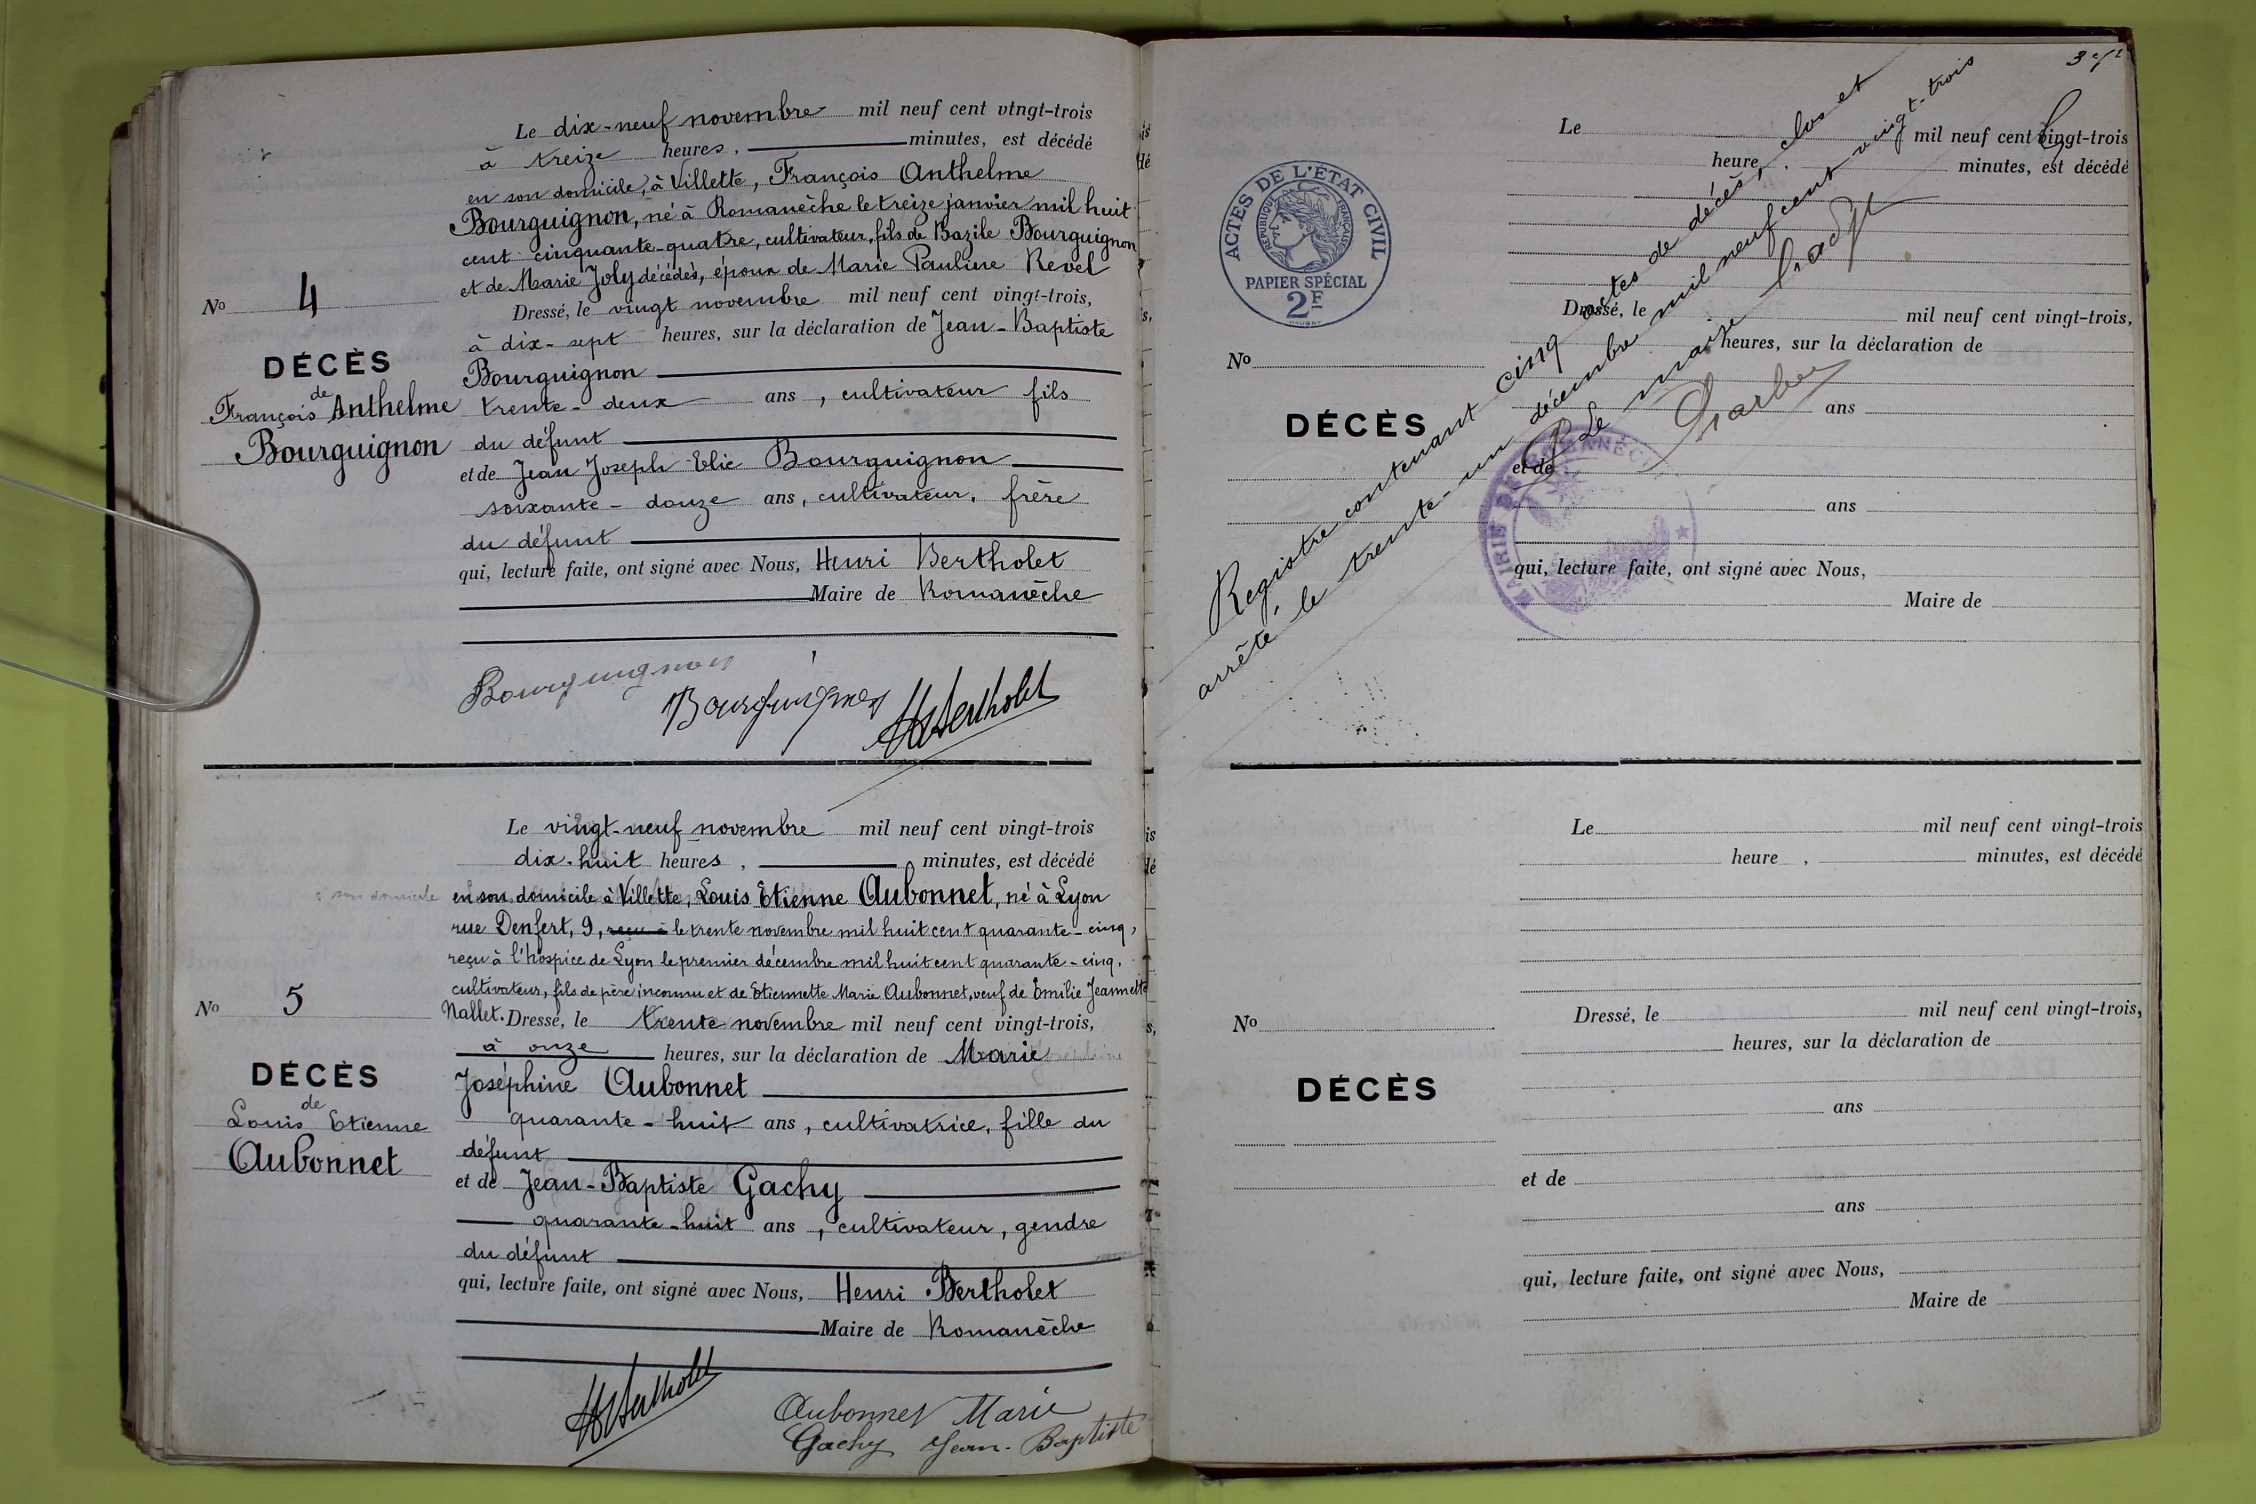 Le dix-neuf novembre mil neuf cent vingt-trois
à treize heures, minutes, est décédé
en son domicile, à Villette, François Anthelme
Bourguignon, né à Romanèche le treize janvier mil huit
cent cinquante-quatre, cultivateur, fils de Bazile Bourguignon
et de Marie Joly décédés, époux de Marie Pauline Revel
No 4
Dressé, le vingt novembre mil neuf cent vingt-trois,
à dix-sept heures, sur la déclaration de Jean-Baptiste
DÉCÈS
de
François Anthelme
Bourguignon
Bourguignon
trente-deux ans, cultivateur fils
du défunt
et de Jean Joseph Elie Bourguignon
soixante-douze ans, cultivateur, frère
du défunt
qui, lecture faite, ont signé avec Nous, Henri Bertholet
Maire de Romanèche
Bourguignon
Bourguignon
HBertholet
Le vingt-neuf novembre mil neuf cent vingt-trois
dix-huit heures, minutes, est décédé
en son domicile à Villette, Louis Etienne Aubonnet, né à Lyon
rue Denfert, 9, reçu à le trente novembre mil huit cent quarante-cinq,
reçu à l'hospice de Lyon le premier décembre mil huit cent quarante-cinq.
cultivateur, fils de père inconnu et de Etiennette Marie Aubonnet, veuf de Emilie Jeannette
Nallet.
No 5
Dressé, le trente novembre mil neuf cent vingt-trois,
à onze heures, sur la déclaration de Marie
DÉCÈS
de
Louis Etienne
Aubonnet
Joséphine Aubonnet
quarante-huit ans, cultivatrice, fille du
défunt
et de Jean-Baptiste Gachy
quarante-huit ans, cultivateur, gendre
du défunt
qui, lecture faite, ont signé avec Nous, Henri Bertholet
Maire de Romanèche
HBertholet
Aubonnet Marie
Gachy Jean-Baptiste
ACTES DE L'ÉTAT CIVIL
RÉPUBLIQUE FRANÇAISE
PAPIER SPÉCIAL
2F
Le mil neuf cent vingt-trois
heure, minutes, est décédé
Dressé, le mil neuf cent vingt-trois,
heures, sur la déclaration de
No
DÉCÈS
ans
et de
ans
qui, lecture faite, ont signé avec Nous,
Maire de
Registre contenant cinq actes de décès, clos et
arrêté, le trente-un décembre mil neuf cent vingt-trois
Le maire
MAIRIE DE
Le mil neuf cent vingt-trois
heure, minutes, est décédé
Dressé, le mil neuf cent vingt-trois,
heures, sur la déclaration de
No
DÉCÈS
ans
et de
ans
qui, lecture faite, ont signé avec Nous,
Maire de